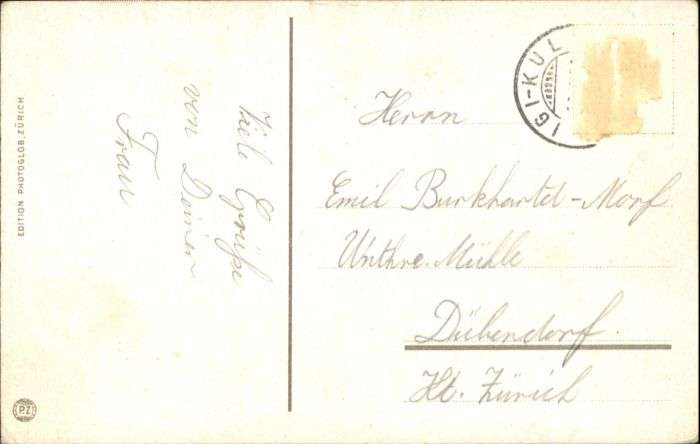 EDITION PHOTOGLOB ZÜRICH
PZ
Viele Grüße
von Deiner
Frau
IGI-KUL
Herrn
Emil Burkhartd-Morf
Unthre. Mühle
Dübendorf.
Kt. Zürich